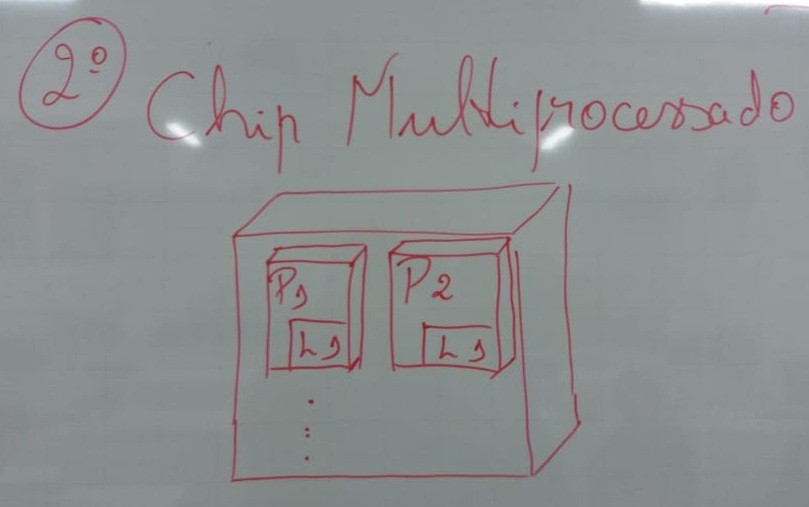 2º Chip Multiprocessado
P1 P2
L1 L1